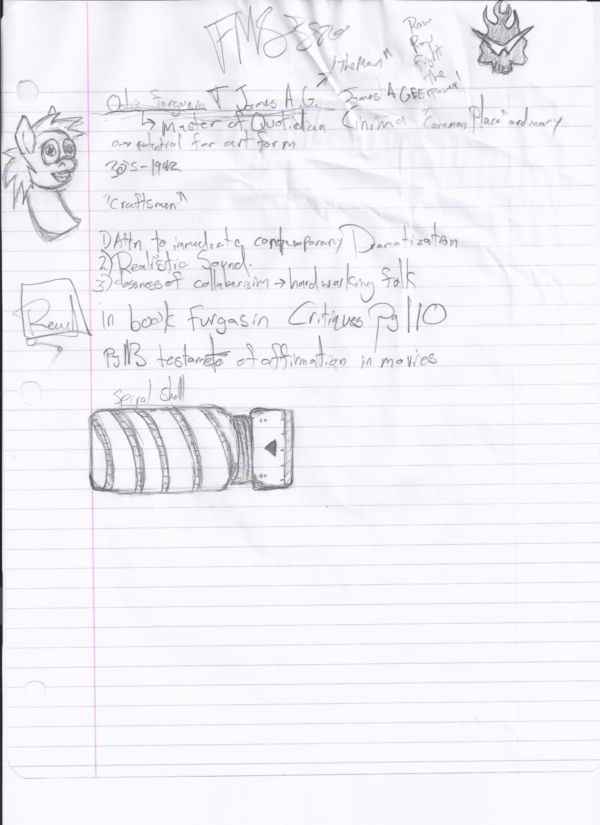 FMS 3580
"the Man"
Raw
Raw
Fight
the
power!
Otis Ferguson & James A.G. James AGEE
↳ Master of Quotidian Cinima "Common Place" ordinary
potential for art form
-1942
"Craftsmen"
1) Attn to immediate contemporary Dramatization
2) Realistic Sound.
3) closness of collaberizim → hard working folk
Read
in book Furgasin Critiques Pg 110
Pg 113 testamete of affirmation in movies
Spiral Shell